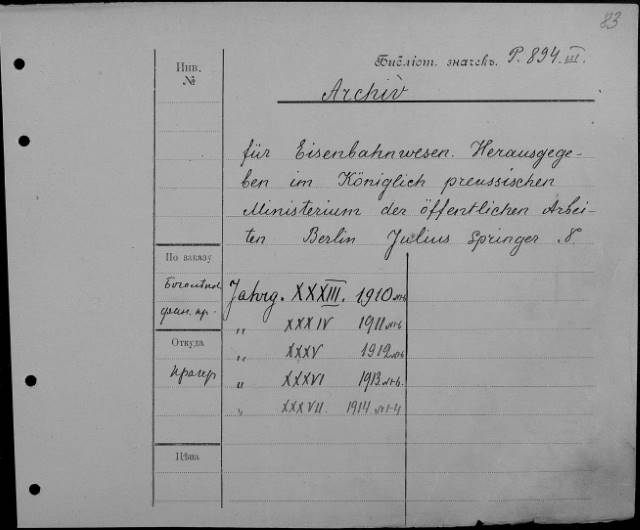 83
Инв.
№
Библіот. значекъ. P. 894.III.
Archiv
für Eisenbahnwesen. Herausgege-
ben im Königlich preussischen
Ministerium der öffentlichen Arbei-
ten Berlin Julius Springer 8°.
По заказу
фин. пр.
Jahrg. XXXIII. 1910 №1-6
„ XXXIV 1911 №1-6
„ XXXV 1912 №1-6
„ XXXVI 1913 №1-6.
„ XXXVII 1914 №1-4
Откуда
Прагер
Цѣна